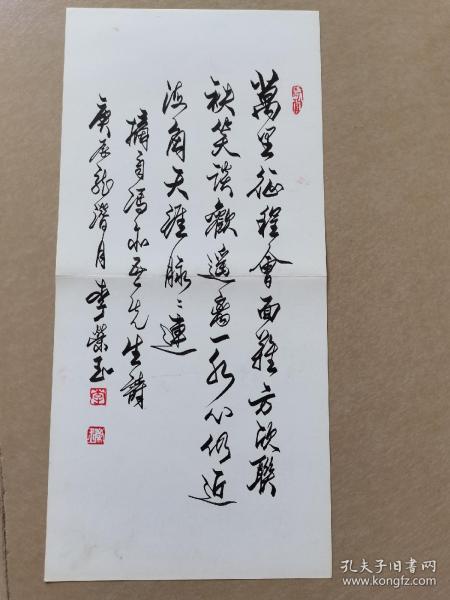 萬里征程會面難方欣聯
袂笑談歡遥离一水心仍近
海角天涯脉々連
摘自馮亦吾先生詩
庚辰龙潜月李荣玉
孔夫子旧书网
www.kongfz.com